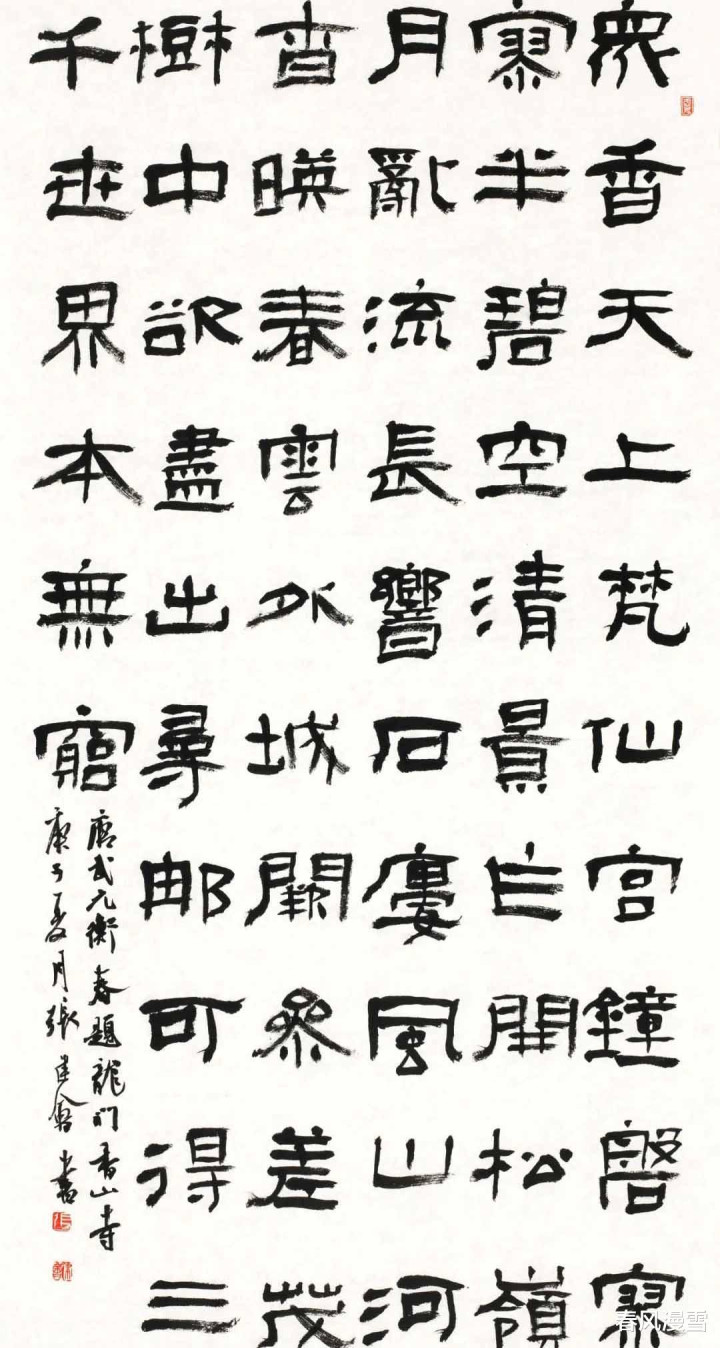 衆香天上梵仙宮鐘磬寥
寥半碧空清景乍開松嶺
月亂流長響石廔風山河
杳暎春雲外城闕叅差茂
樹中欲盡出尋那可得三
千世界本無窮
唐武元衡春題龍门香山寺
庚子夏月張建會書
春风漫雪